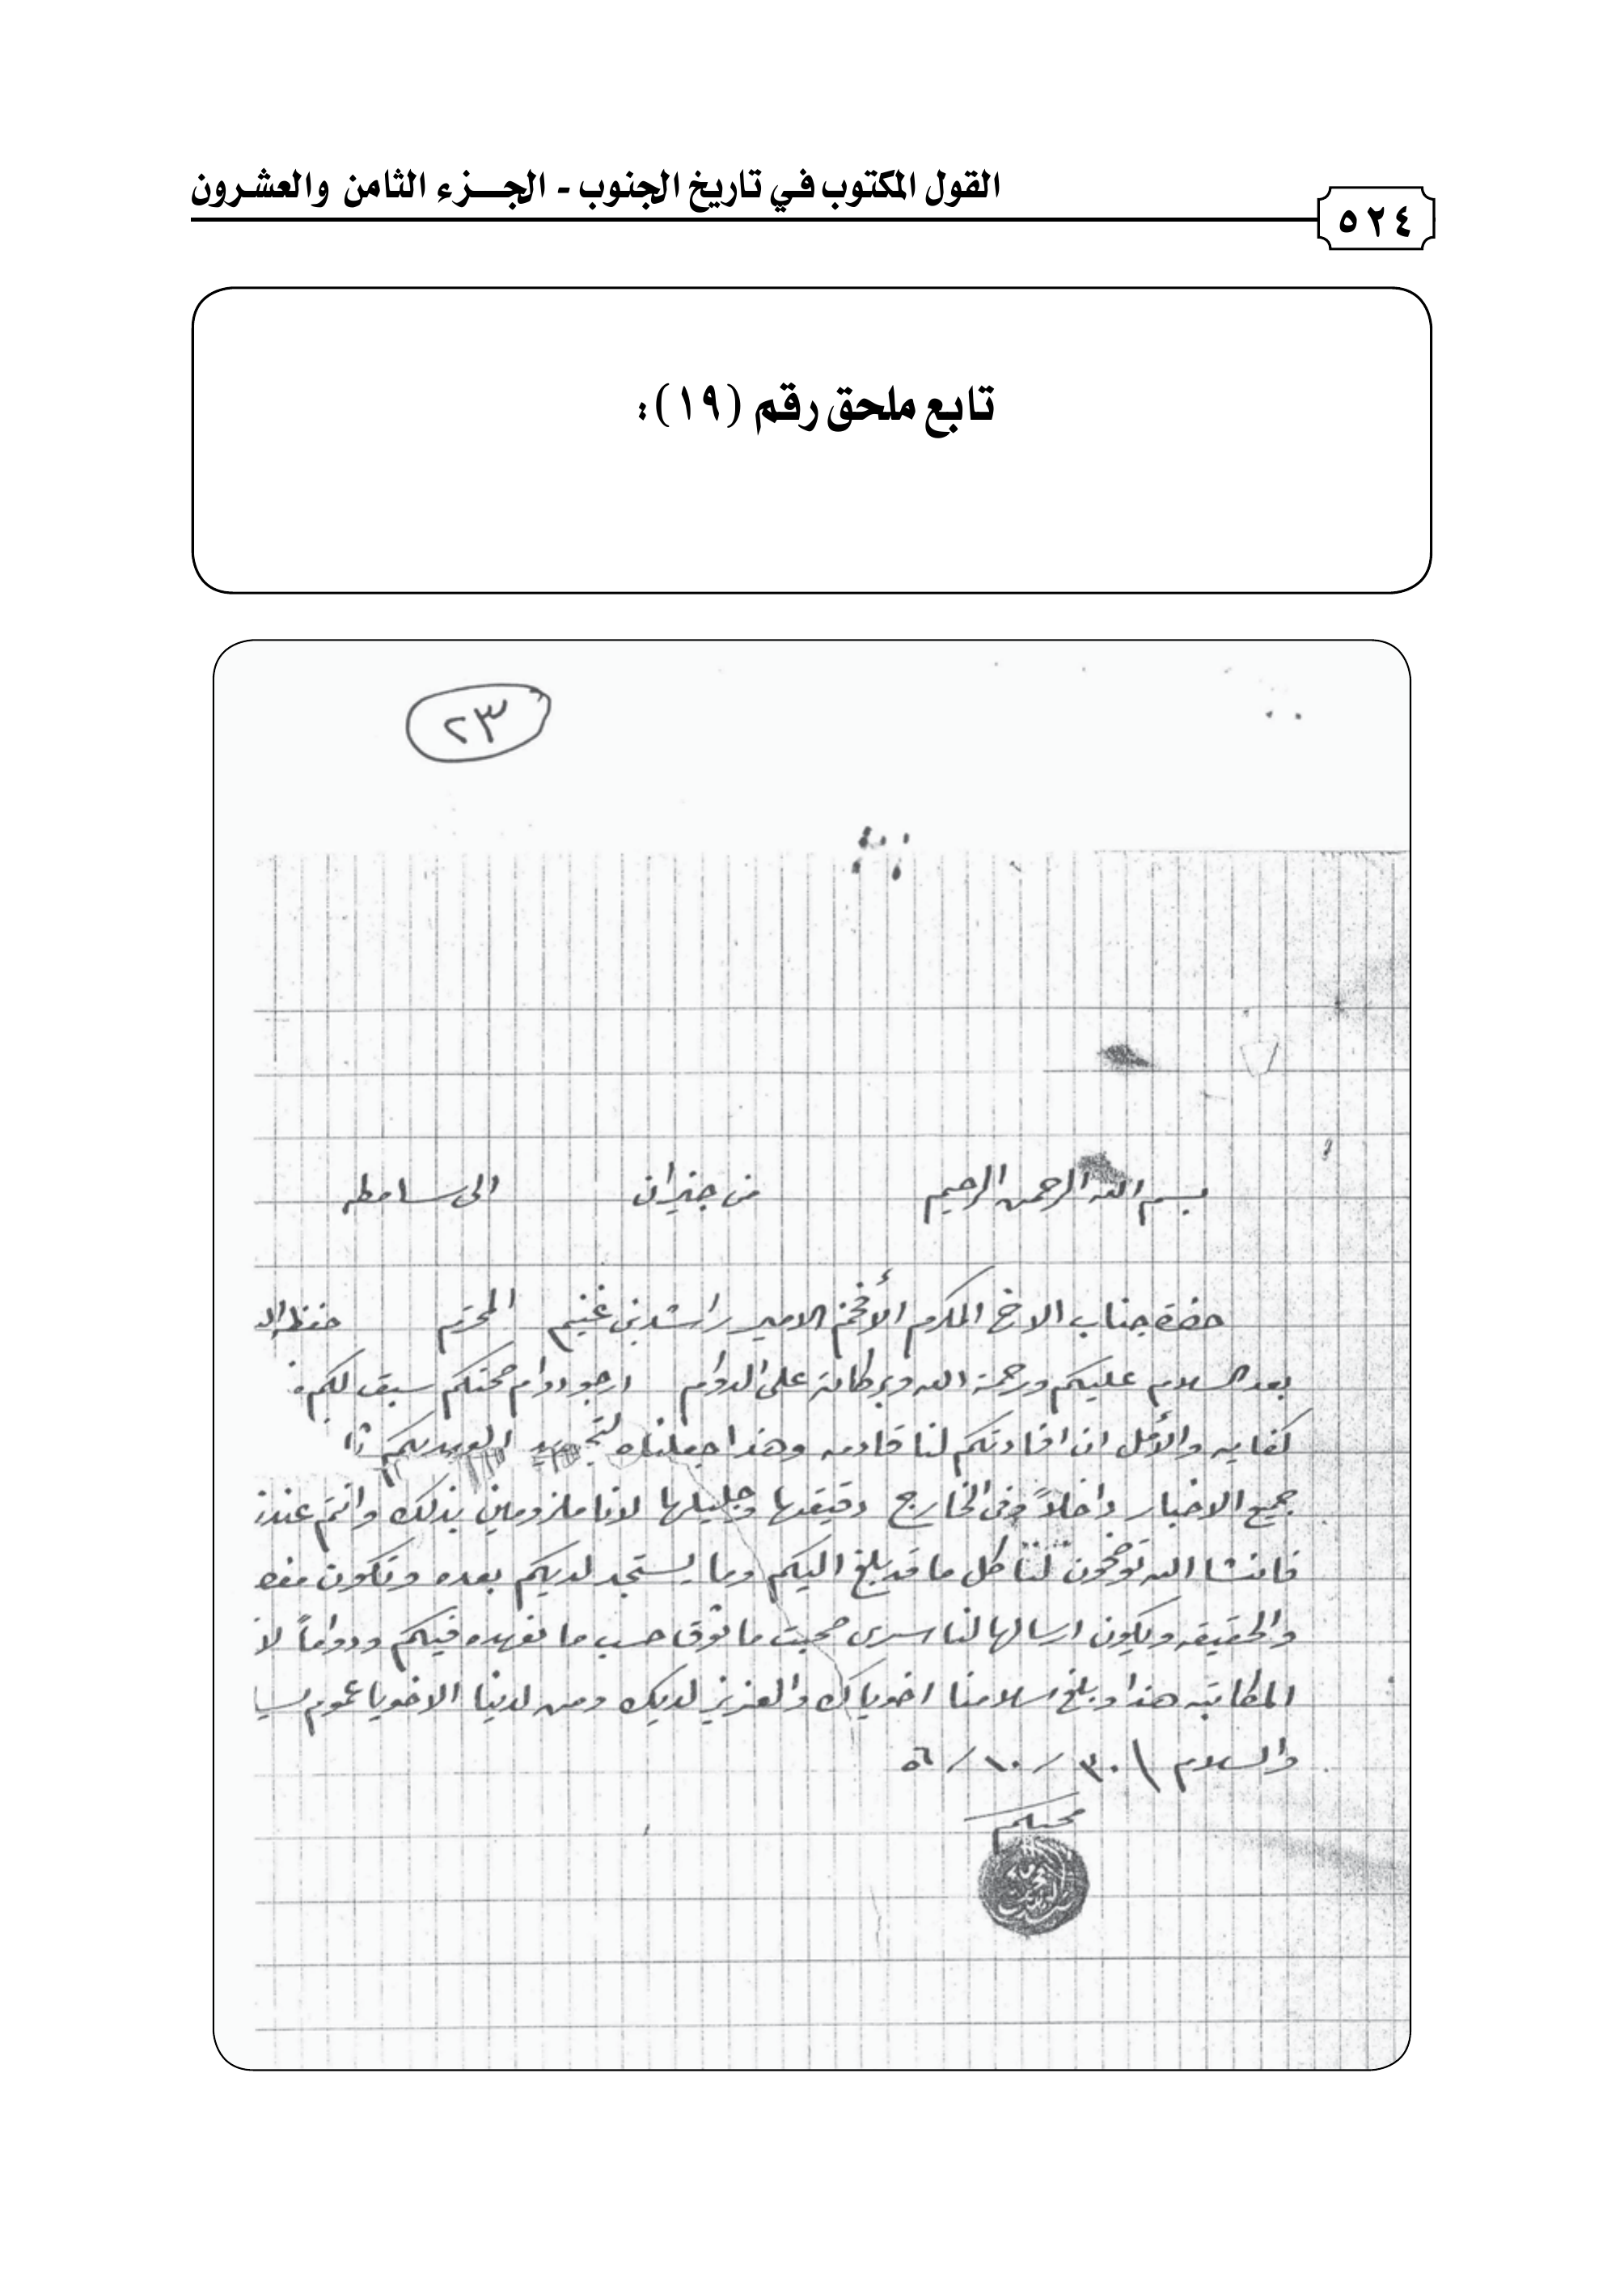 القول المكتوب في تاريخ الجنوب - الجزء الثامن والعشرون
٥٢٤
تابع ملحق رقم (١٩):
٢٣
بسم الله الرحمن الرحيم من جيزان الى سامطه
حضرة جناب الاخ المكرم الأفخم الامير راشد بن غنيم المحترم حفظه الله
بعد السلام عليكم ورحمة الله وبركاته على الدوام ارجو دوام صحتكم سبق لكم
كفايه والأمل ان افادتكم لنا قادمه وهذا جعلناه لتجديد العهد بكم
جميع الاخبار داخلاً وفى الخارج دقيقها وجليلها لانا ملزومين بذلك وانتم
فانشا الله توضحون لنا كل ما قد بلغ اليكم وما يستجد لديكم بعده وتكون
والحقيقه ويكون ارسالها لنا سرى صحبت ما ثوق حسب ما نعهده فيكم ودواماً
المكاتبه هذا وبلغ سلامنا اخوياك والعزيز لديك ومن لدينا الاخويا عموم
والسلام \ ٣٠ / ١٠ / ٥٦
محبكم